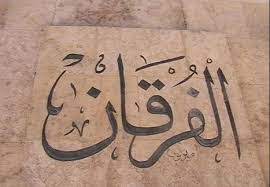 الفُرقان